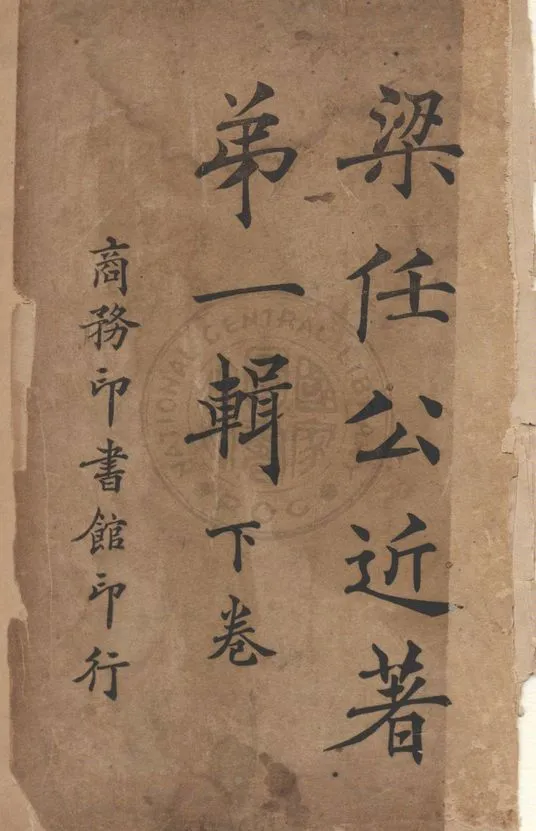 梁任公近著
弟一輯 下卷
商務印書館印行
NATIONAL CENTRAL LIBRARY
R.O.C.